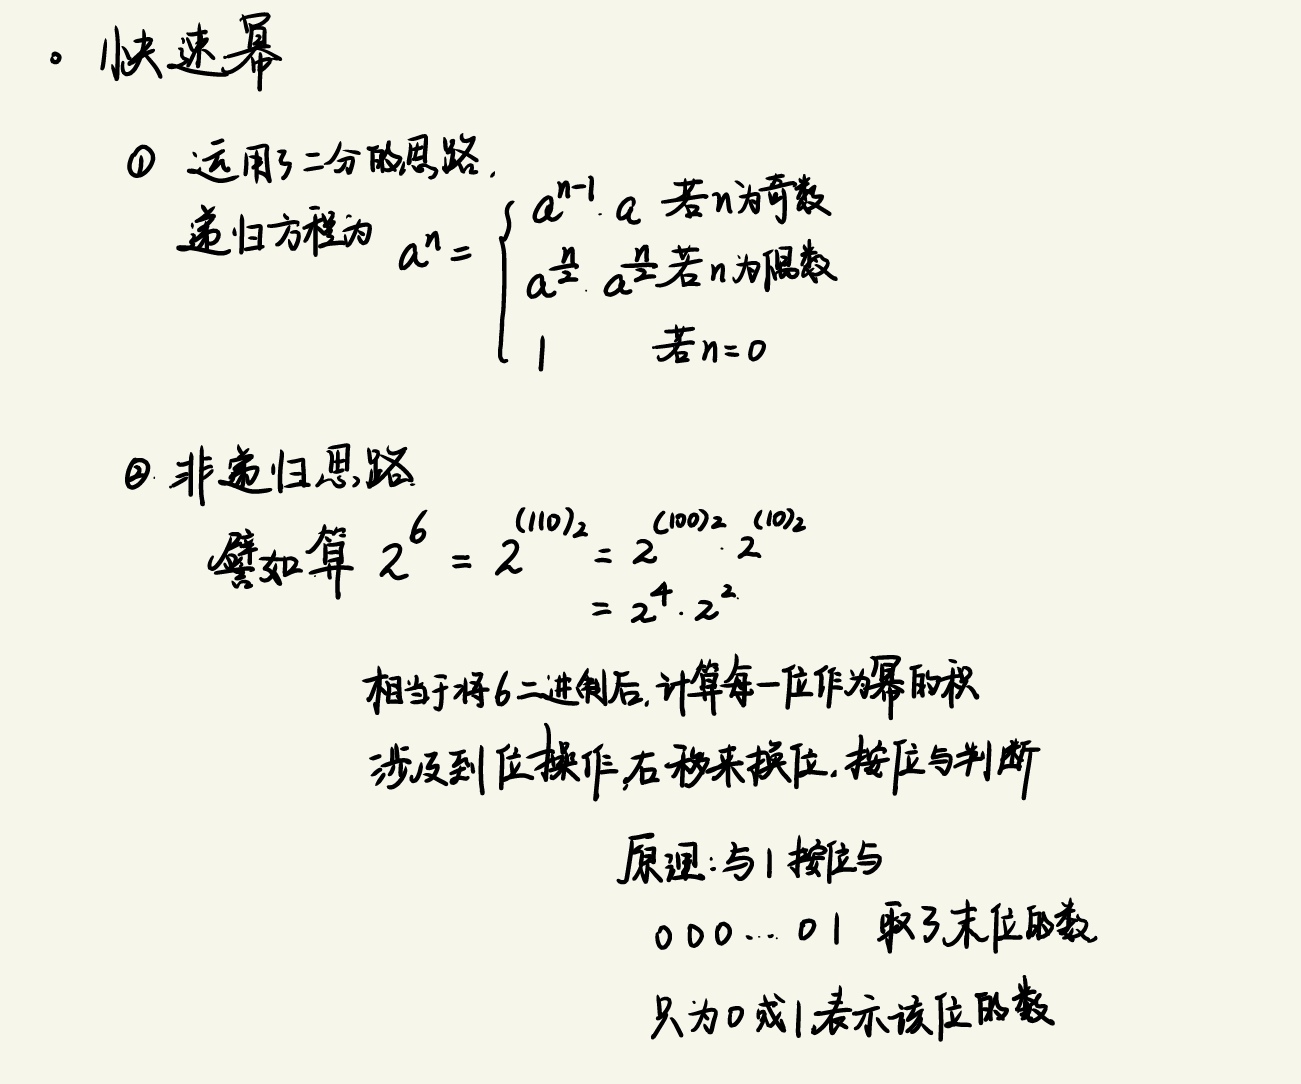 · 快速幂
① 运用了二分的思路.
递归方程为 aⁿ = { aⁿ⁻¹·a 若n为奇数
a^{n/2}·a^{n/2} 若n为偶数
1 若n=0
② 非递归思路
譬如算 2^6 = 2^{(110)₂} = 2^{(100)₂}·2^{(10)₂}
= 2^4·2^2
相当于将6二进制后,计算每一位作为幂的积
涉及到位操作,右移来换位.按位与判断
原理:与1按位与
000…01 取了末位的数
只为0或1,表示该位的数